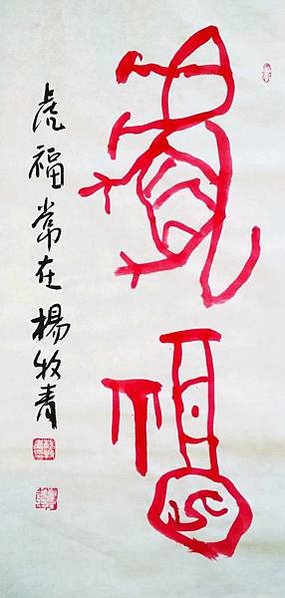 虎福
虎福常在 楊牧青